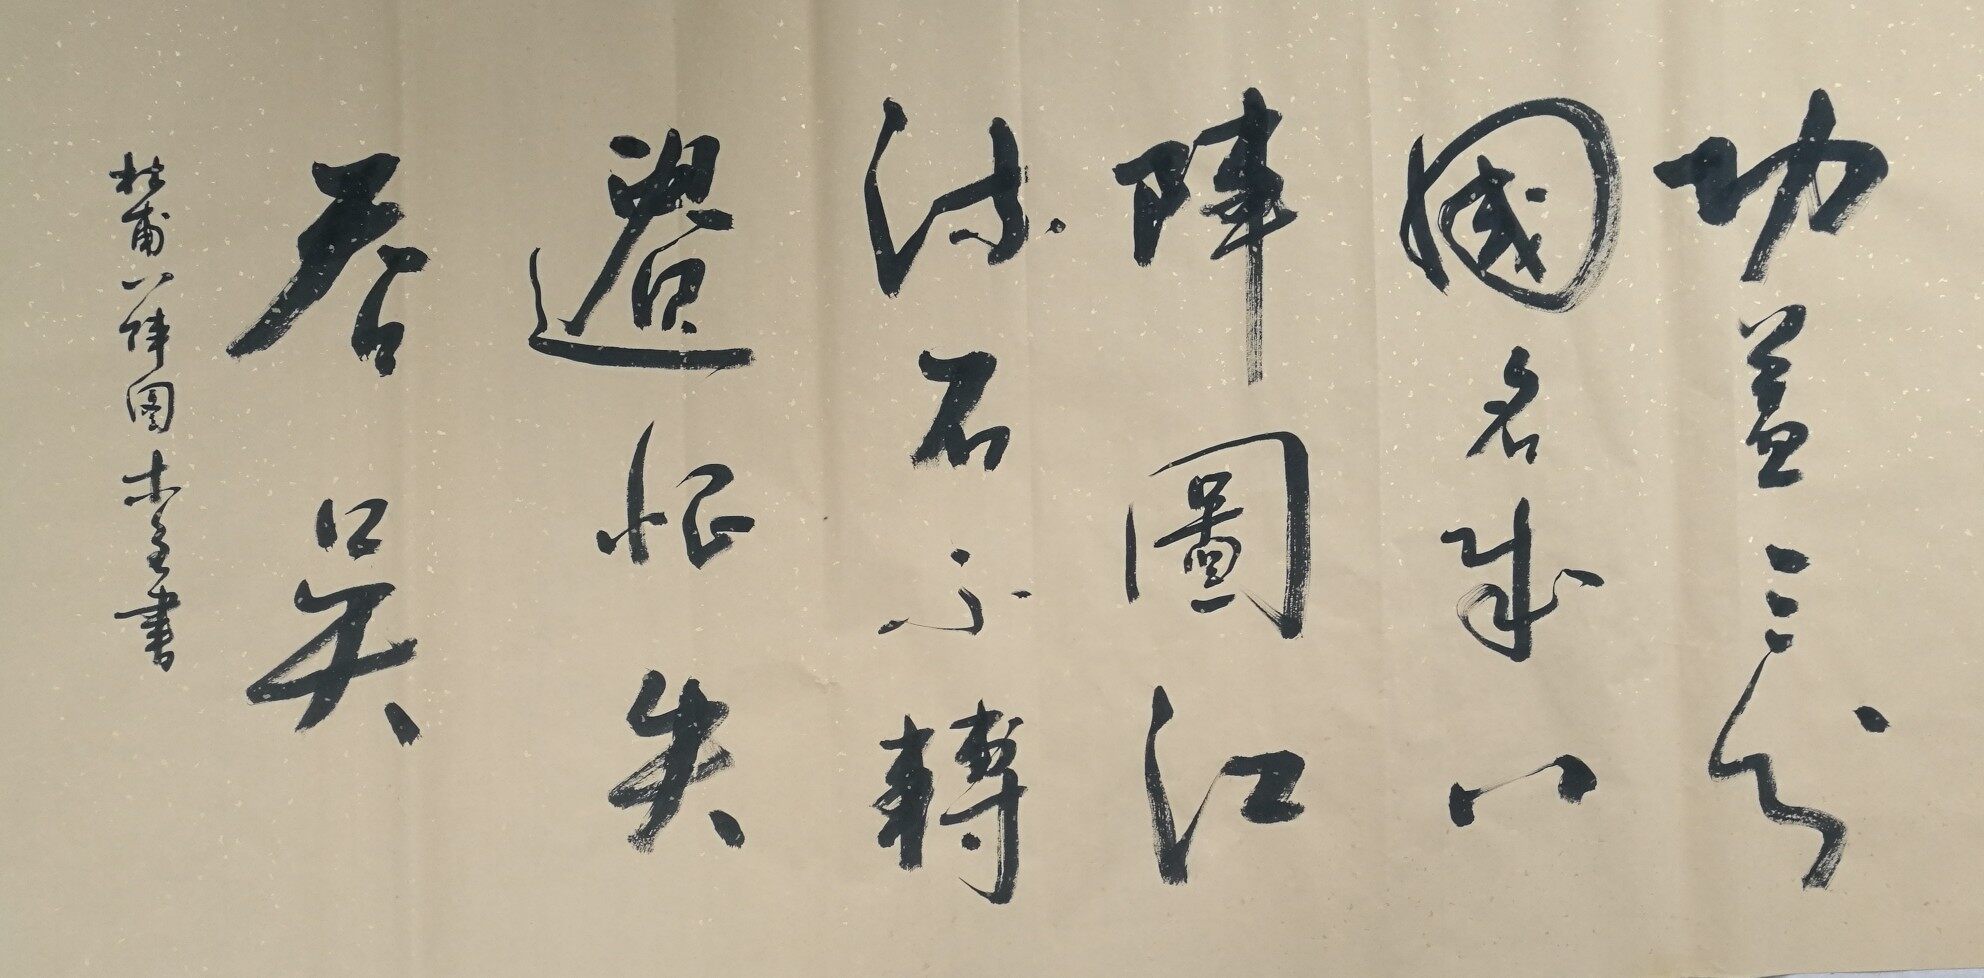 功盖三分
國名成八
陣圖江
流石不轉
遺恨失
吞吳
杜甫八陣图木書